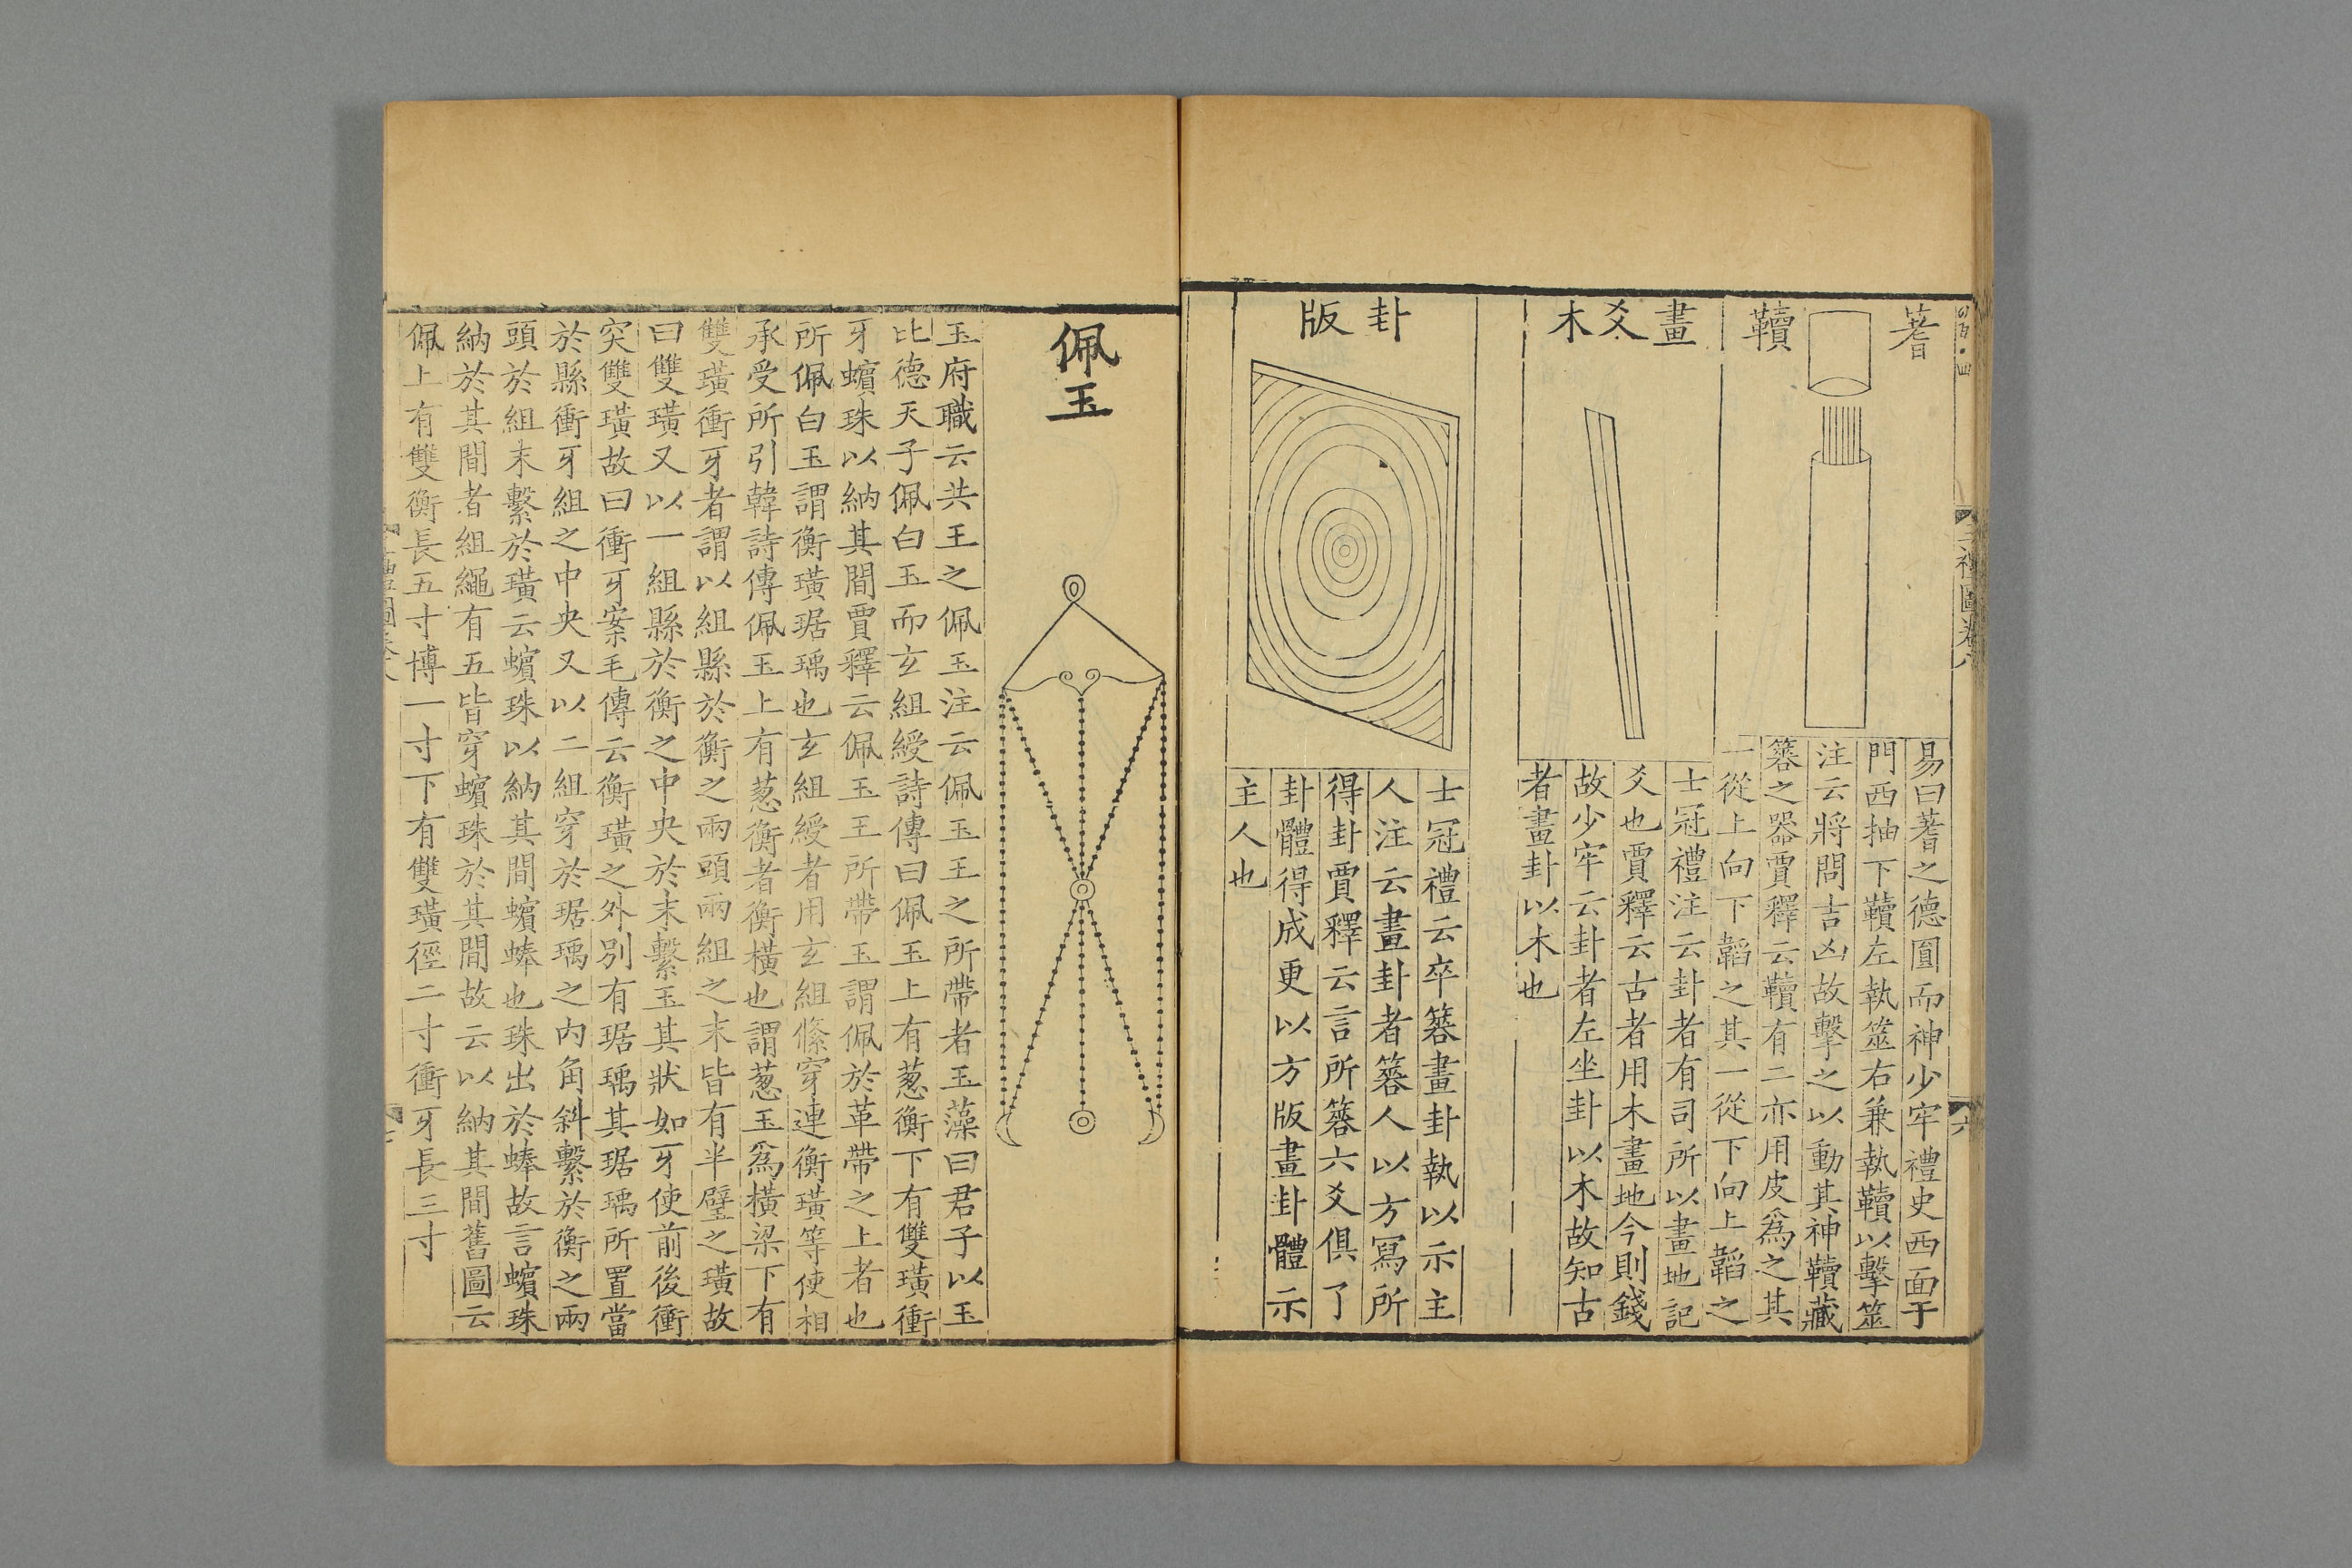 蓍
韇
易曰蓍之德圓而神少牢禮史西面于
門西抽下韇左執筮右兼執韇以擊筮
注云將問吉凶故擊之以動其神韇藏
簭之器賈釋云韇有二亦用皮爲之其
一從上向下韜之其一從下向上韜之
畫爻木
士冠禮注云卦者有司所以畫地記
爻也賈釋云古者用木畫地今則錢
故少牢云卦者左坐卦以木故知古
者畫卦以木也
卦版
士冠禮云卒簭畫卦執以示主
人注云畫卦者簭人以方寫所
得卦賈釋云言所簭六爻俱了
卦體得成更以方版畫卦體示
主人也
佩玉
玉府職云共王之佩玉注云佩玉王之所帶者玉藻曰君子以玉
比德天子佩白玉而玄組綬詩傳曰佩玉上有蔥衡下有雙璜衝
牙蠙珠以納其間賈釋云佩玉王所帶玉謂佩於革帶之上者也
所佩白玉謂衡璜琚瑀也玄組綬者用玄組絛穿連衡璜等使相
承受所引韓詩傳佩玉上有蔥衡者衡橫也謂蔥玉爲橫梁下有
雙璜衝牙者謂以組縣於衡之兩頭兩組之末皆有半璧之璜故
曰雙璜又以一組縣於衡之中央於末繫玉其狀如牙使前後衝
突雙璜故曰衝牙案毛傳云衡璜之外別有琚瑀其琚瑀所置當
於縣衝牙組之中央又以二組穿於琚瑀之內角斜繫於衡之兩
頭於組末繫於璜云蠙珠以納其間蠙蜯也珠出於蜯故言蠙珠
納於其間者組繩有五皆穿蠙珠於其間故云以納其間舊圖云
佩上有雙衡長五寸博一寸下有雙璜徑二寸衝牙長三寸